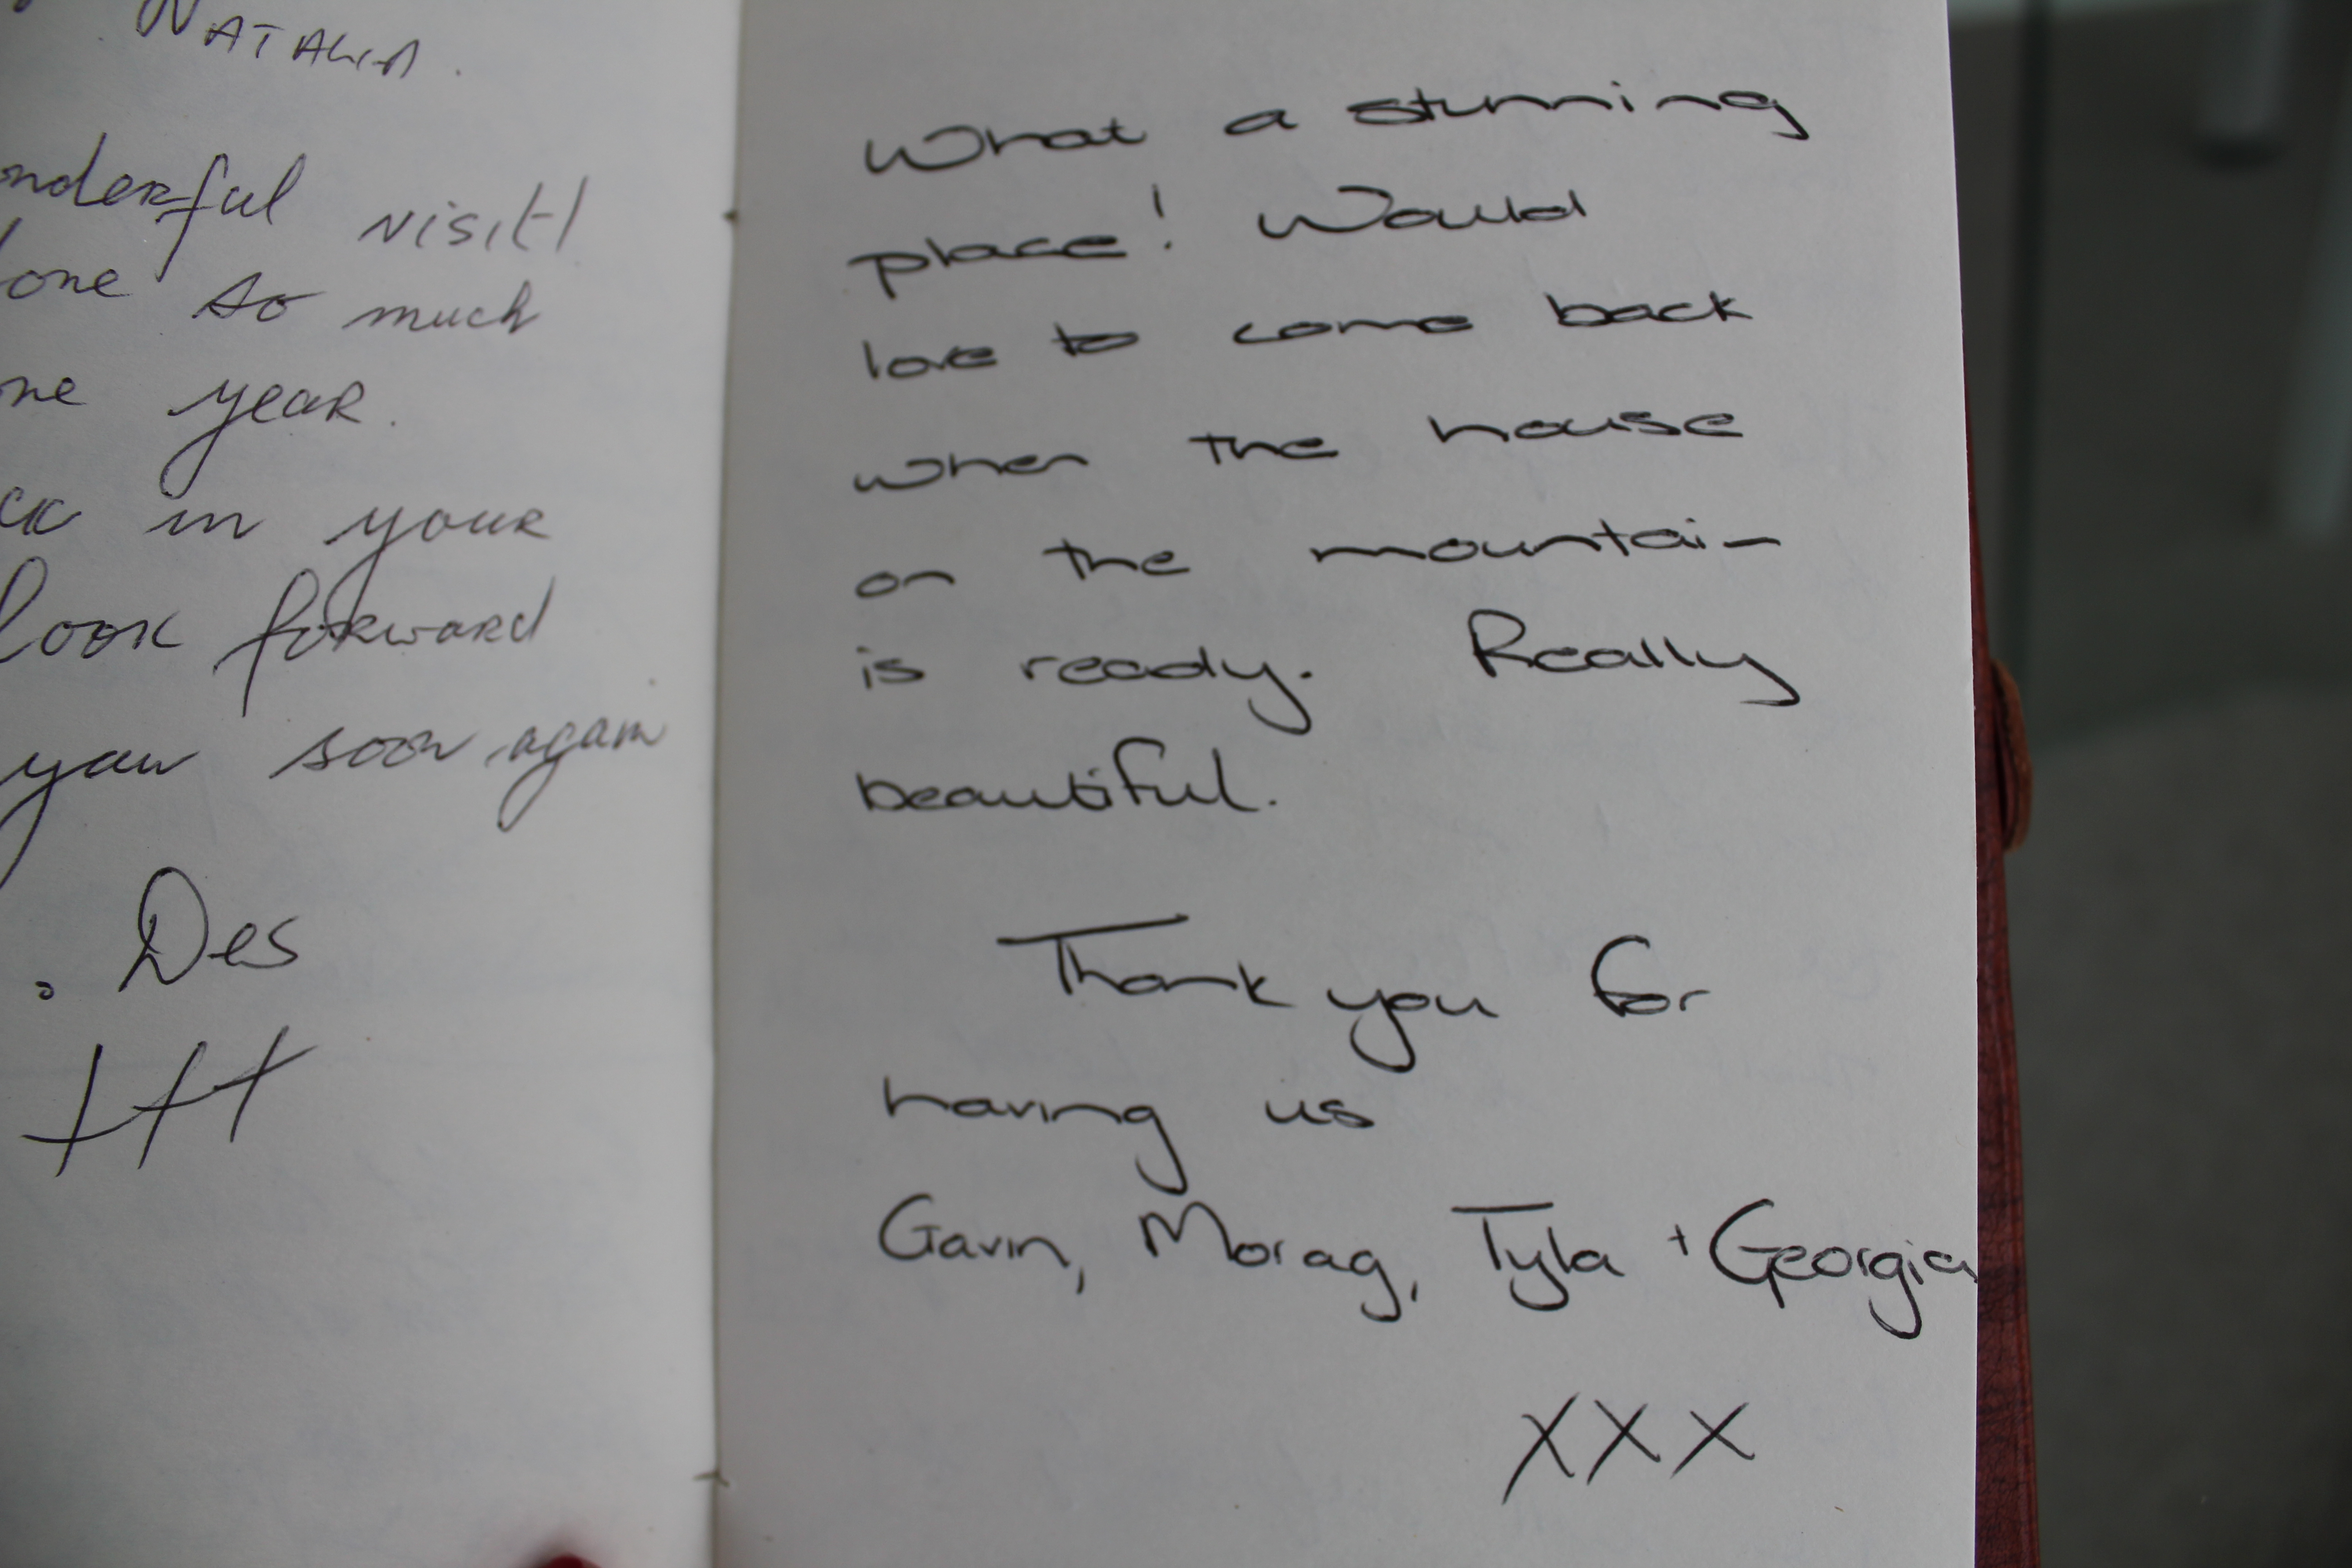 NATALIA.
onderful visit!
one so much
ne year.
ck in your
look forward
soon again
. Des
What a stunning
place! Would
love to come back
when the house
on the mountain
is ready. Really
beautiful.
Thank you for
having us
Gavin, Morag, Tyla + Georgia
XXX